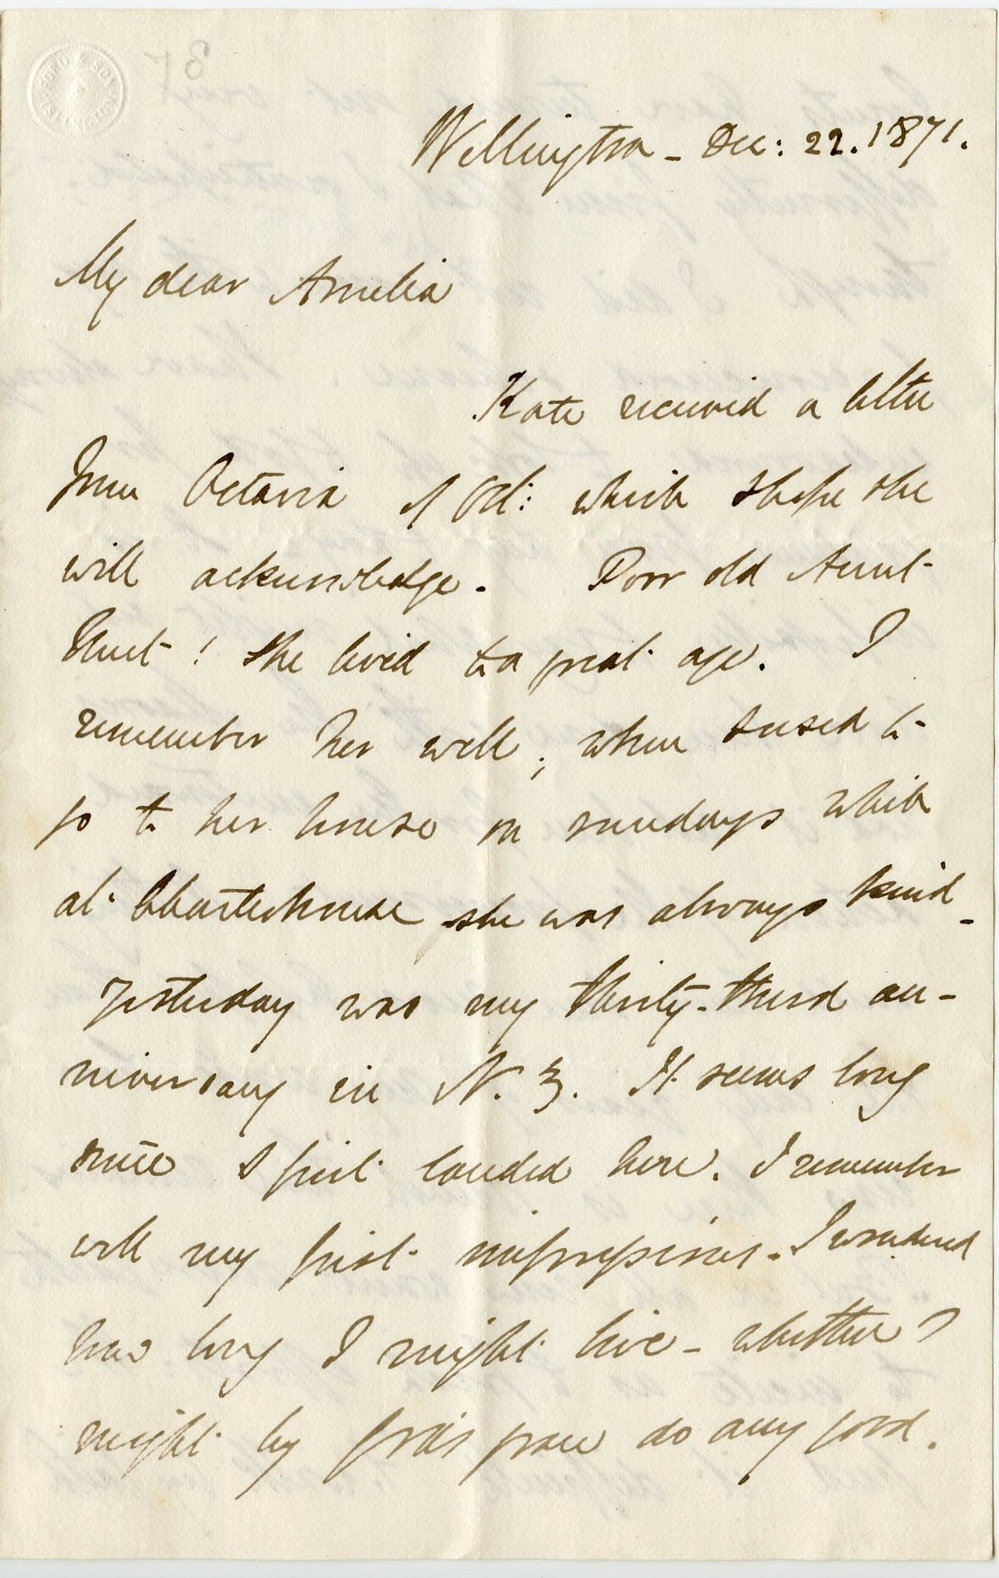 Wellington – Dec: 22. 1871.
My dear Amelia
Kate received a letter
from Octavia of Oct: which I hope she
will acknowledge. Poor old Aunt
Hunt! She lived to a great age. I
remember her well, when I used to
go to her house on Sundays while
at Charterhouse she was always kind –
Yesterday was my thirty-third an-
niversary in N. Z. It seems long
since I first landed here. I remember
well my first impressions. I wondered
how long I might live – whether I
might by God's grace do any good.